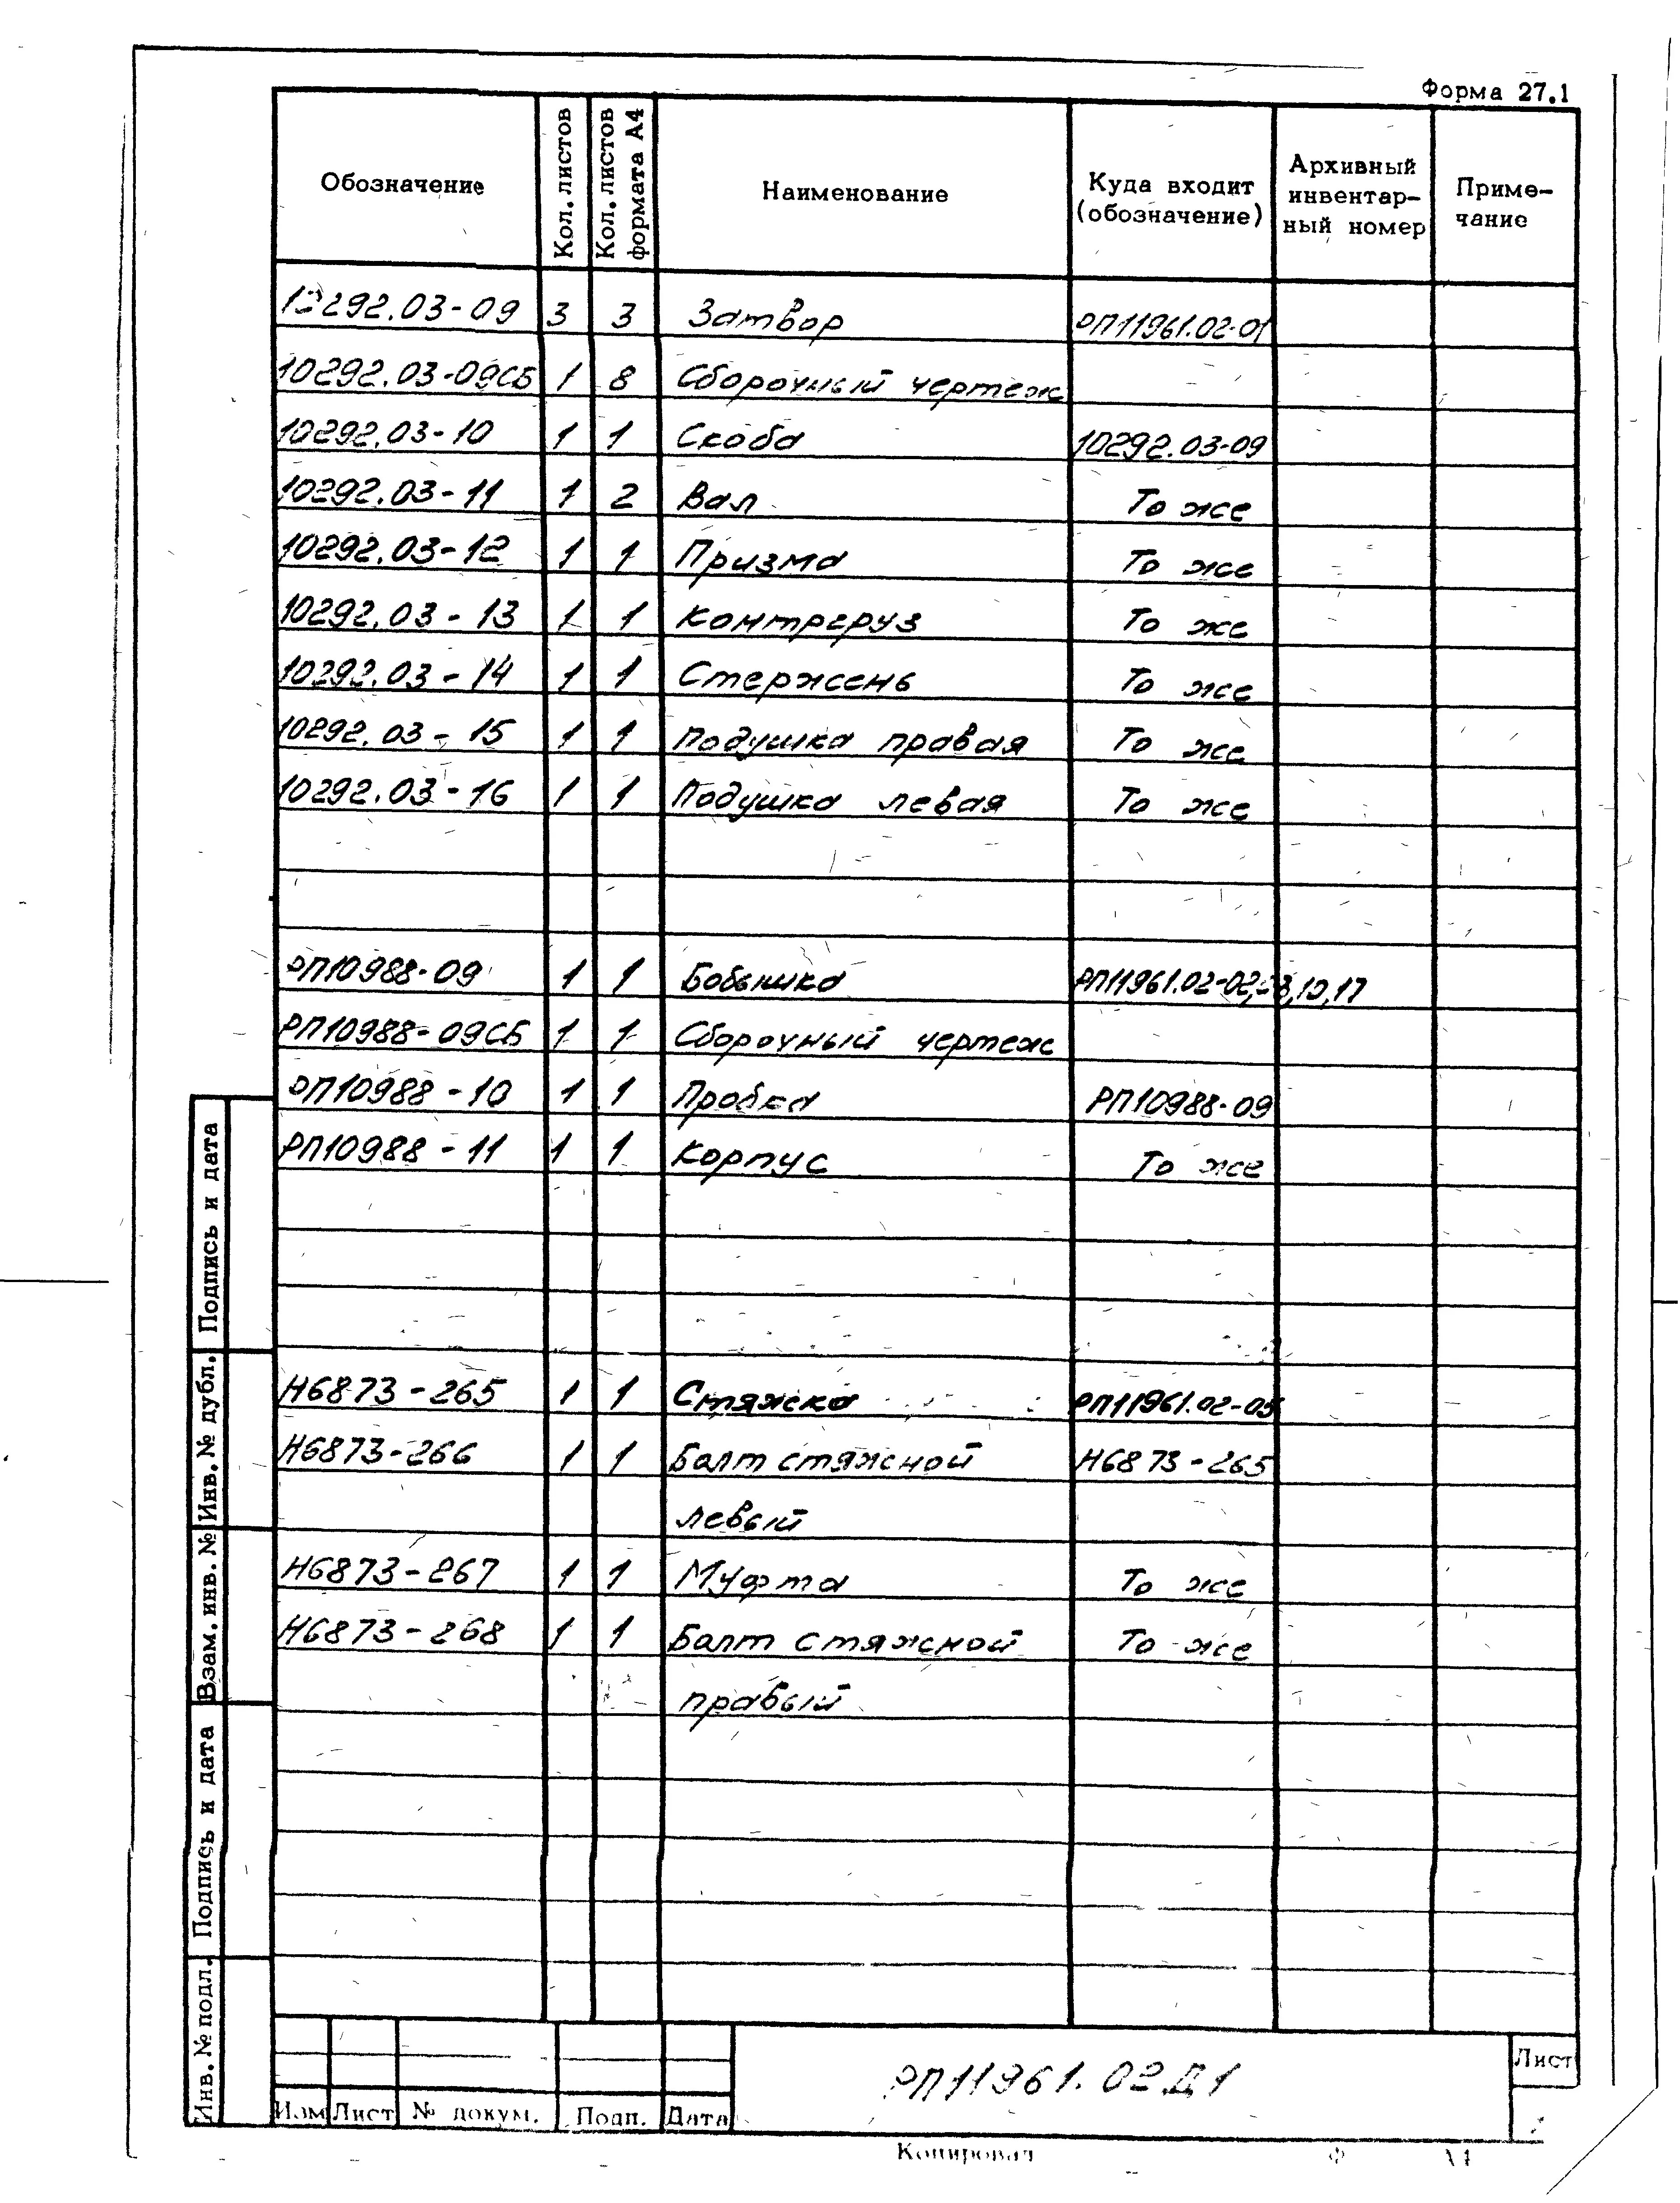 Форма 27.1
Обозначение
Кол. листов
Кол. листов
формата А4
Наименование
Куда входит
(обозначение)
Архивный
инвентар-
ный номер
Приме-
чание
10292.03-09 3 3 Затвор РП11961.02-01
10292.03-09СБ 1 8 Сборочный чертеж
10292.03-10 1 1 Скоба 10292.03-09
10292.03-11 1 2 Вал То же
10292.03-12 1 1 Призма То же
10292.03-13 1 1 Контргруз То же
10292.03-14 1 1 Стержень То же
10292.03-15 1 1 Подушка правая То же
10292.03-16 1 1 Подушка левая То же
РП10988-09 1 1 Бобышка РП11961.02-02,03,10,17
РП10988-09СБ 1 1 Сборочный чертеж
РП10988-10 1 1 Пробка РП10988-09
РП10988-11 1 1 Корпус То же
Н6873-265 1 1 Стяжка РП11961.02-05
Н6873-266 1 1 Балт стяжной Н6873-265
левый
Н6873-267 1 1 Муфта То же
Н6873-268 1 1 Балт стяжной То же
правый
Подпись и дата
Инв. № дубл.
Взам. инв. №
Подпись и дата
Инв. № подл.
РП11961.02Д1
Лист
Изм Лист № докум. Подп. Дата
Копировал Ф А4